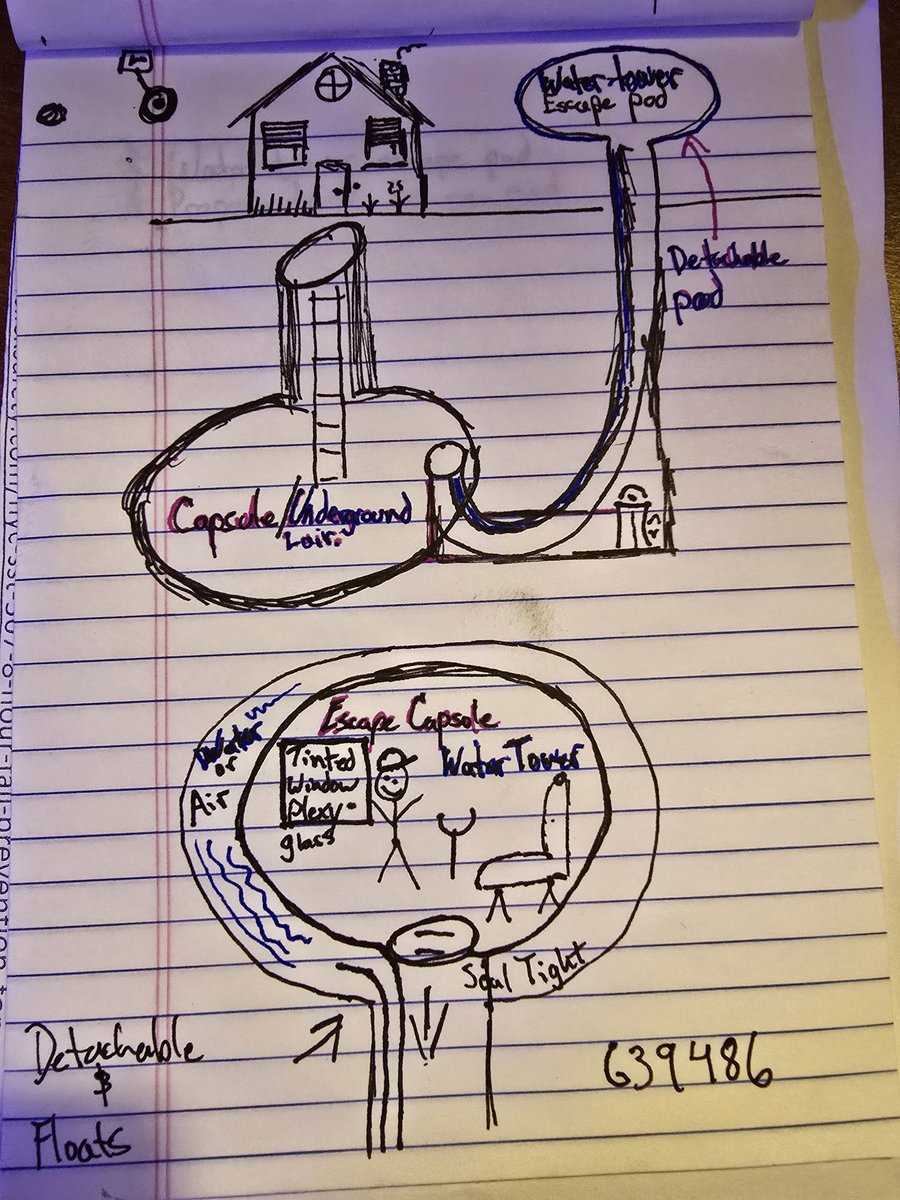 Water-tower
Escape pod
Detachable
pod
Capsole/Underground
Lair.
Escape Capsole
Water Tower
Tinted
Window
Plexy-
glass
Water
or
Air
Seal Tight
Detachable
$
Floats
639486